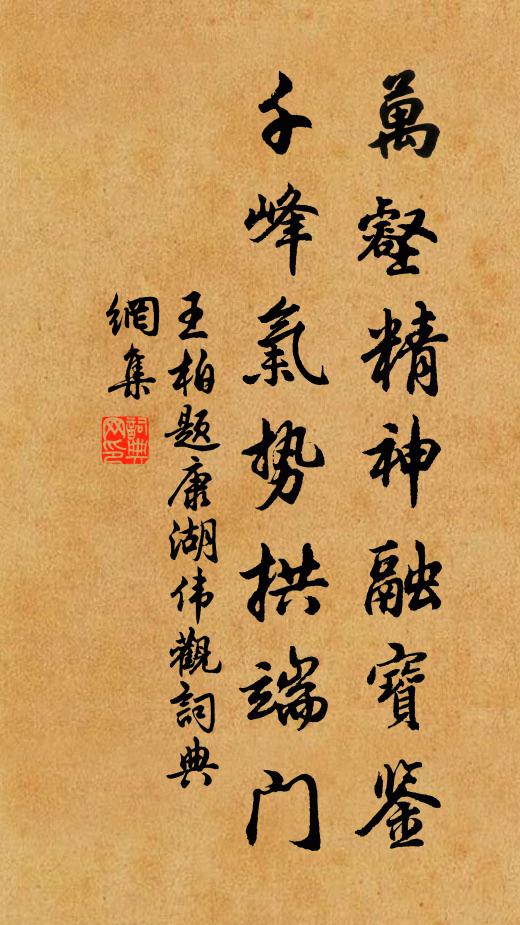 萬壑精神融寶鉴
千峰氣势拱端门
王柏题康湖伟觀詞典
網集
詞典网印